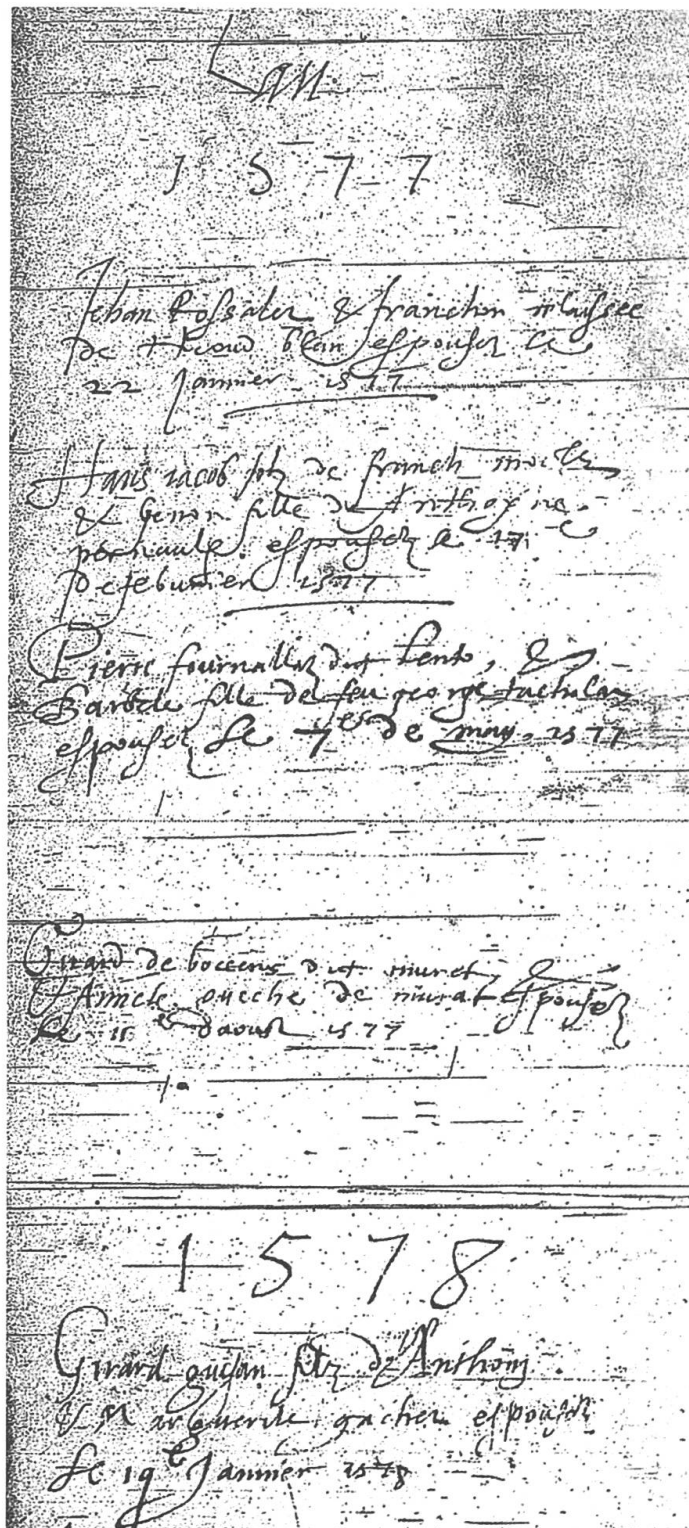 1577
Jehan Rossaler & franchon relaissee
de blan espousez le
22 Jannier 1577
Hans iacob filz de franch
& benon fille de Anthoyne
espousez le 17e
de feburier 1577
Pierre fournallaz dict Pento, &
Barbele fille de feu george
espousez Le 7es de may. 1577
Girard de boccens dict muret, &
de murat Espousez
Le 11e daoust 1577
1578
Girard guisan filz dAnthoyne
& Marguerite gacher espousez
Le 19e Jannier 1578